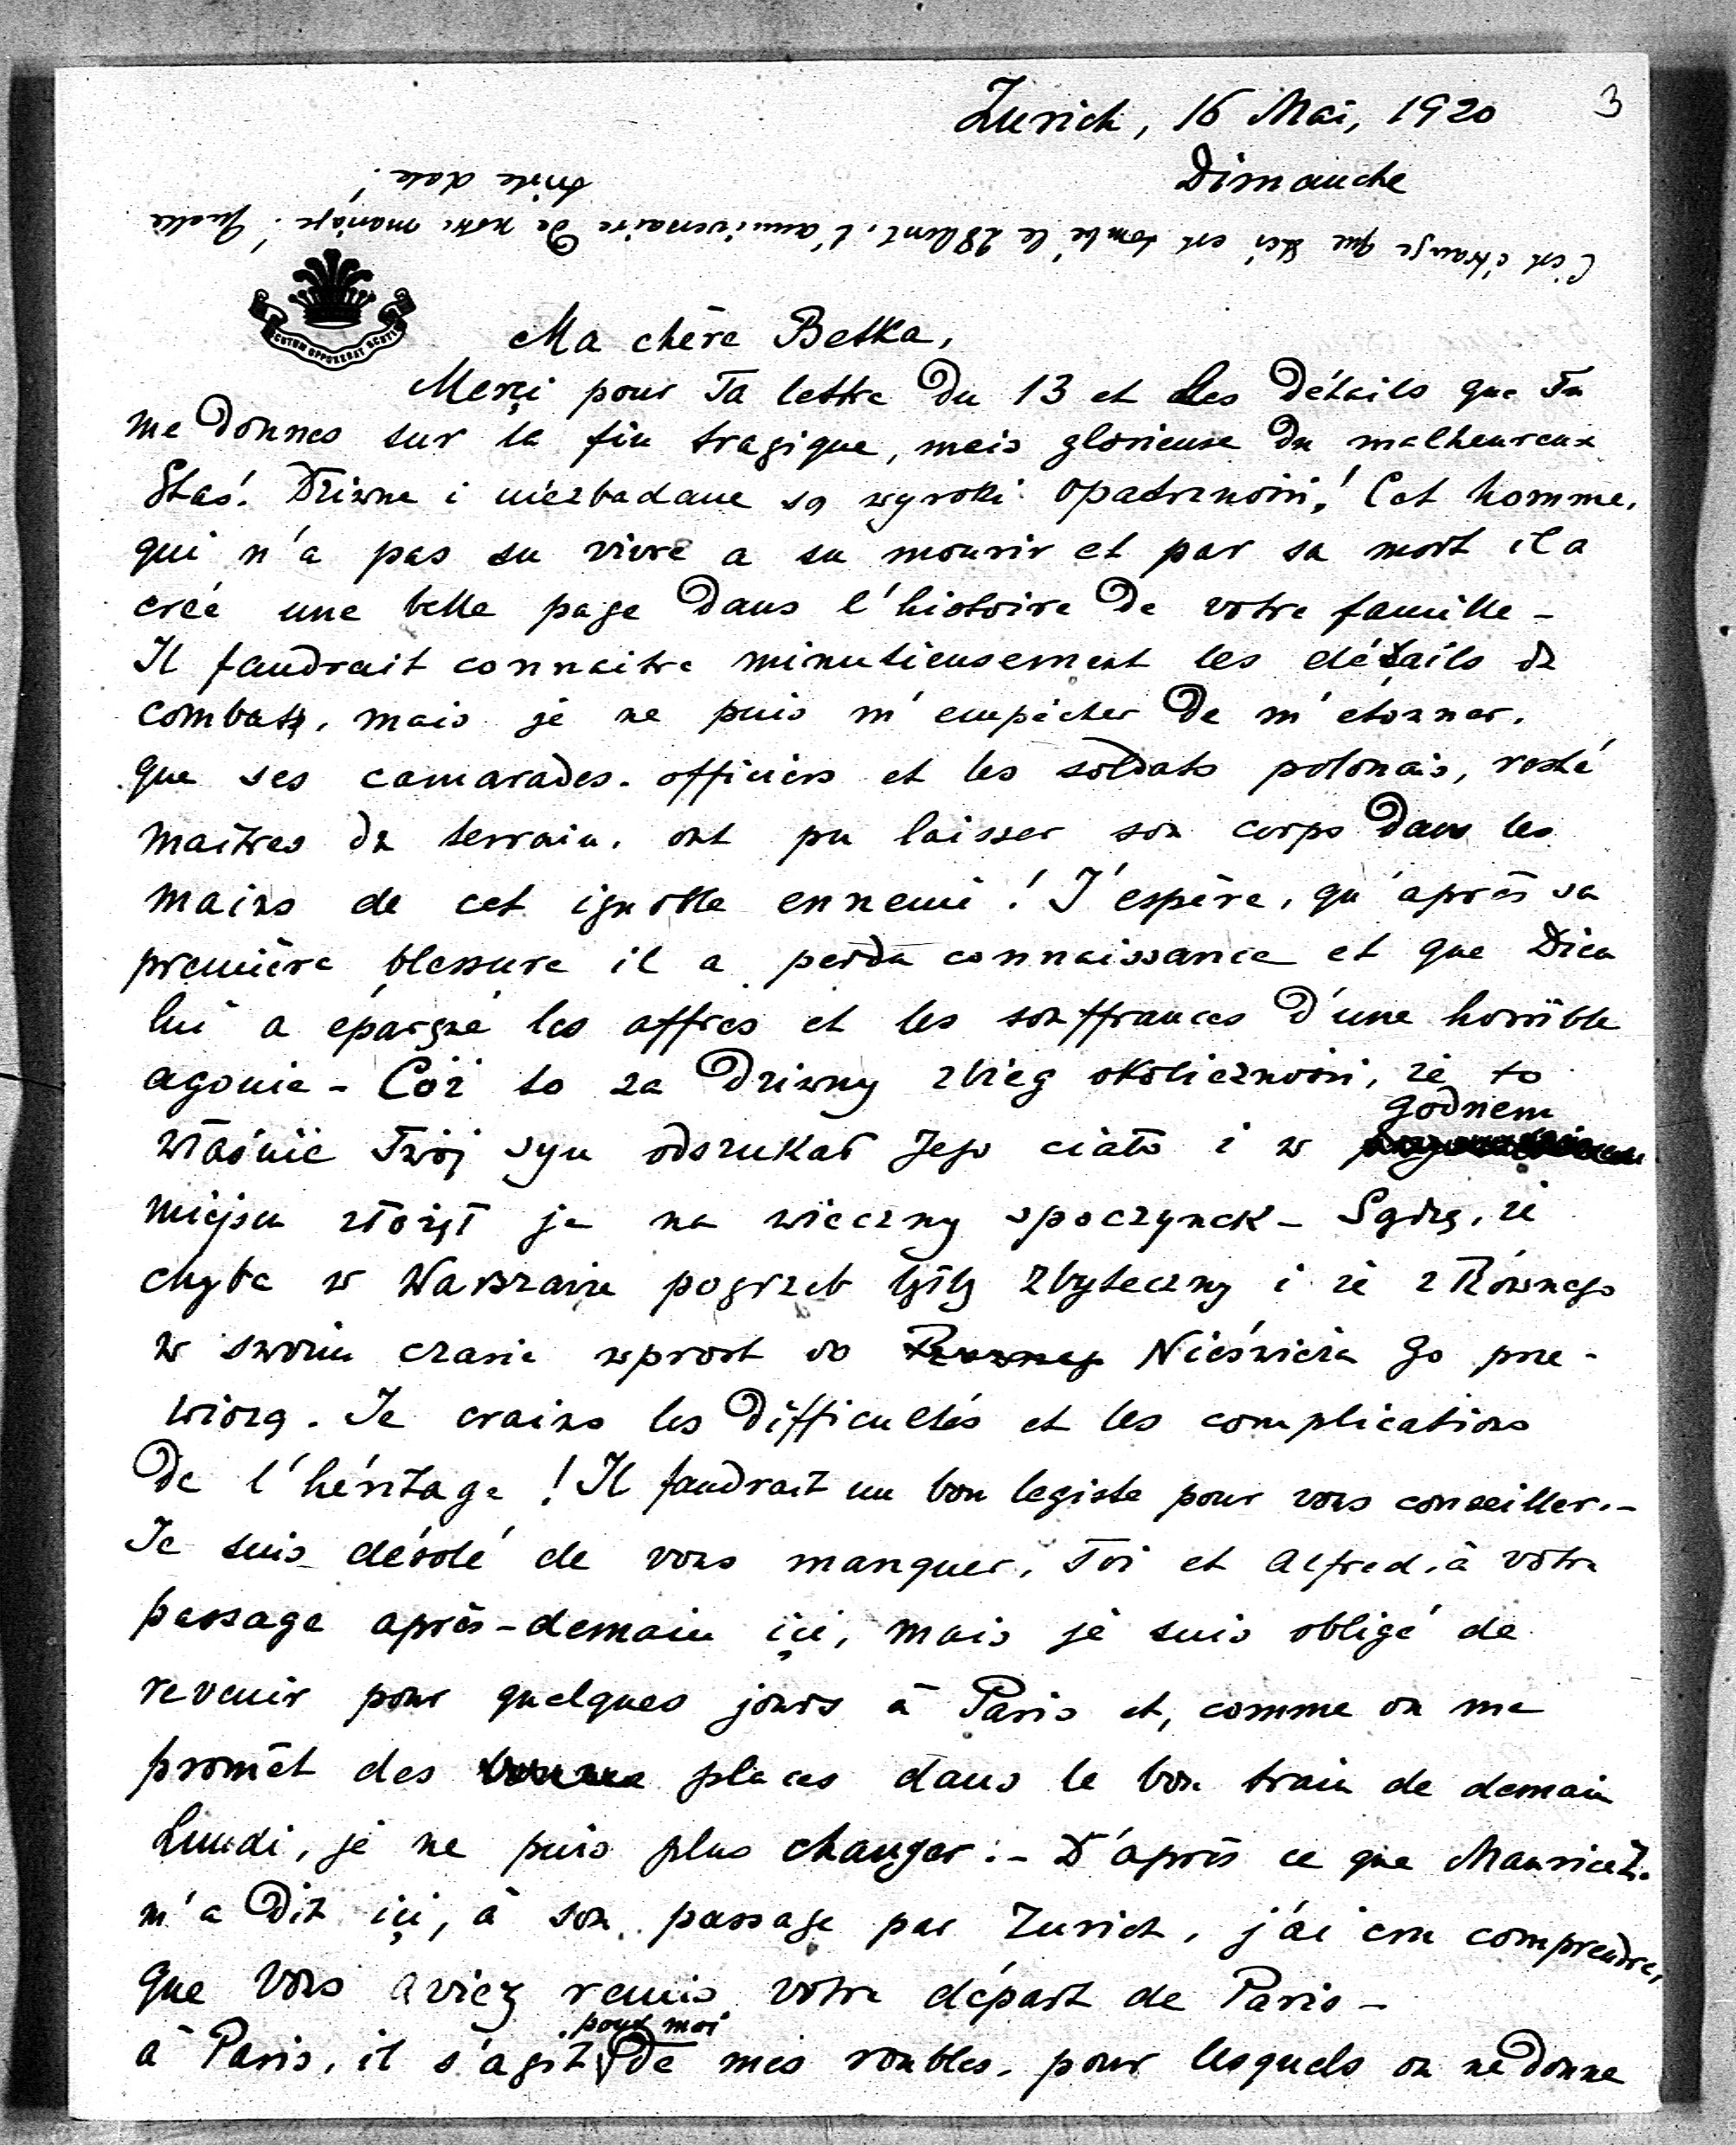 3
Zurich, 16 Mai, 1920
Dimanche
C'est étrange que Staś est tombé le 28 Avril, l'anniversaire de notre mariage! Quelle
triste date!
SCUTUM OPPONEBAT SCUTIS
Ma chère Betka,
Merçi pour Ta lettre du 13 et les détails que Tu
me donnes sur la fin tragique, mais glorieuse du malheureux
Staś! Dziwne i niezbadane są wyroki opatrzności! Cet homme,
qui n'a pas su vivre a su mourir et par sa mort il a
créé une belle page dans l'histoire de votre famille –
Il faudrait connaitre minutieusement les détails du
combat, mais je ne puis m'empêcher de m'étonner,
que ses camarades-officiers et les soldats polonais, resté
maîtres du terrain, ont pu laisser son corps dans les
mains de cet ignoble ennemi! J'espère, qu'après sa
première blessure il a perdu connaissance et que Dieu
lui a épargné les affres et les souffrances d'une horrible
agonie – Cóż to za dziwny zbieg okoliczności, że to
właśnie Twój syn odszukał Jego ciało i w godnem
miejscu złożył je na wieczny spoczynek – Sądzę, że
chyba w Warszawie pogrzeb byłby zbyteczny i że z Równego
w swoim czasie wprost do Rownego Nieświeża Go prze-
wiozą. Je crains les difficultés et les complications
de l'héritage! Il faudrait un bon legiste pour vous conseiller.–
Je suis désolé de vous manquer, Toi et Alfred, à votre
passage après-demain içi, mais je suis obligé de
revenir pour quelques jours à Paris et, comme on me
promêt des places dans le bon train de demain
Lundi, je ne puis plus changer.– D'après ce que Maurice Z.
m'a dit içi, à son passage par Zurich, j'ai cru comprendre,
que vous aviez remis votre départ de Paris –
à Paris, il s'agit pour moi de mes roubles, pour lesquels on ne donne